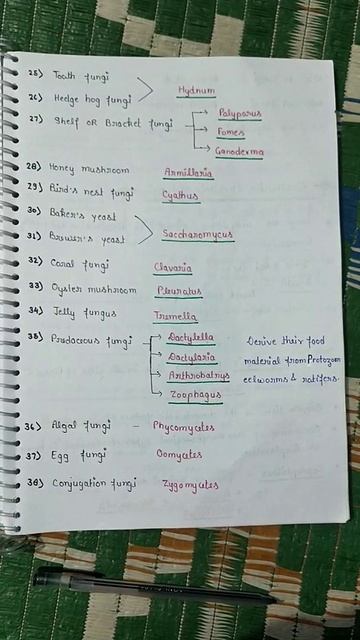 25) Tooth fungi
26) Hedge hog fungi
Hydnum
27) Shelf OR Bracket fungi
Polyporus
Fomes
Ganoderma
28) Honey mushroom Armillaria
29) Bird's nest fungi Cyathus
30) Baker's yeast
31) Brewer's yeast
Saccharomycus
32) Coral fungi Clavaria
33) Oyster mushroom Pleuratus
34) Jelly fungus Tremella
35) Predaceous fungi
Dactylella
Dactylaria
Arthrobatrys
Zoophagus
Derive their food
material from Protozoa
eelworms & rotifers.
36) Algal fungi - Phycomycetes
37) Egg fungi Oomycetes
38) Conjugation fungi Zygomycetes